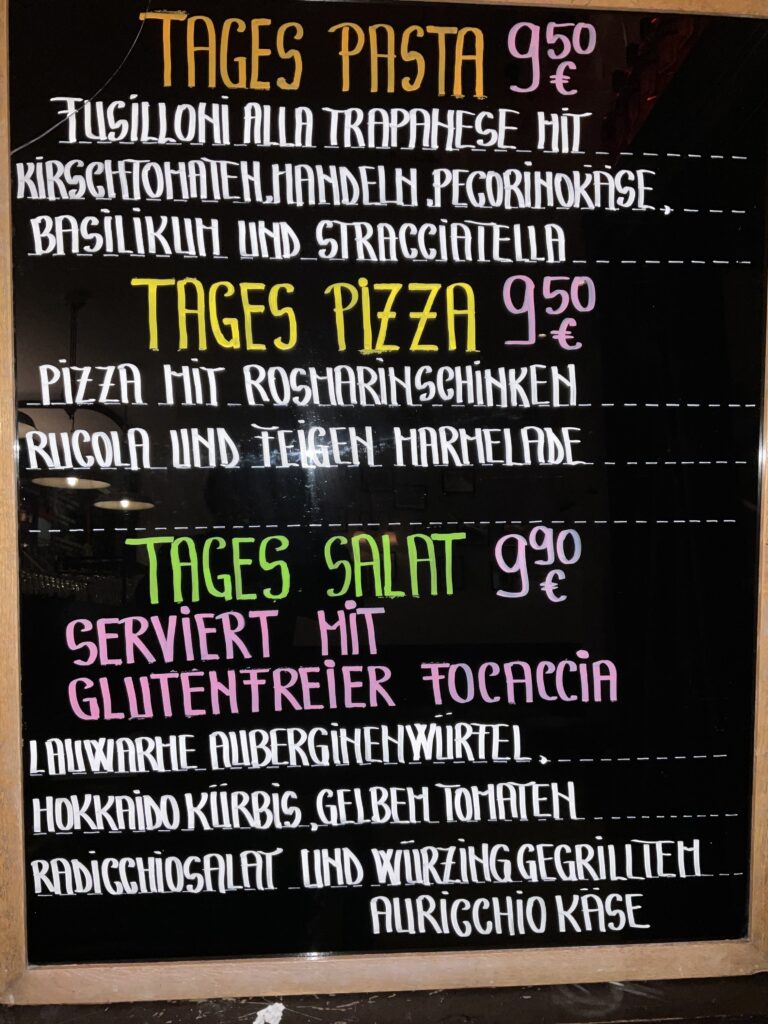 TAGES PASTA 9,50 €
FUSILLONI ALLA TRAPANESE MIT
KIRSCHTOMATEN, MANDELN, PECORINOKÄSE,
BASILIKUM UND STRACCIATELLA
TAGES PIZZA 9,50 €
PIZZA MIT ROSMARINSCHINKEN
RUCOLA UND FEIGEN MARMELADE
TAGES SALAT 9,90 €
SERVIERT MIT
GLUTENFREIER FOCACCIA
LAUWARME AUBERGINENWÜRFEL,
HOKKAIDO KÜRBIS, GELBEM TOMATEN
RADICCHIOSALAT UND WÜRZING GEGRILLTEM
AURICCHIO KÄSE